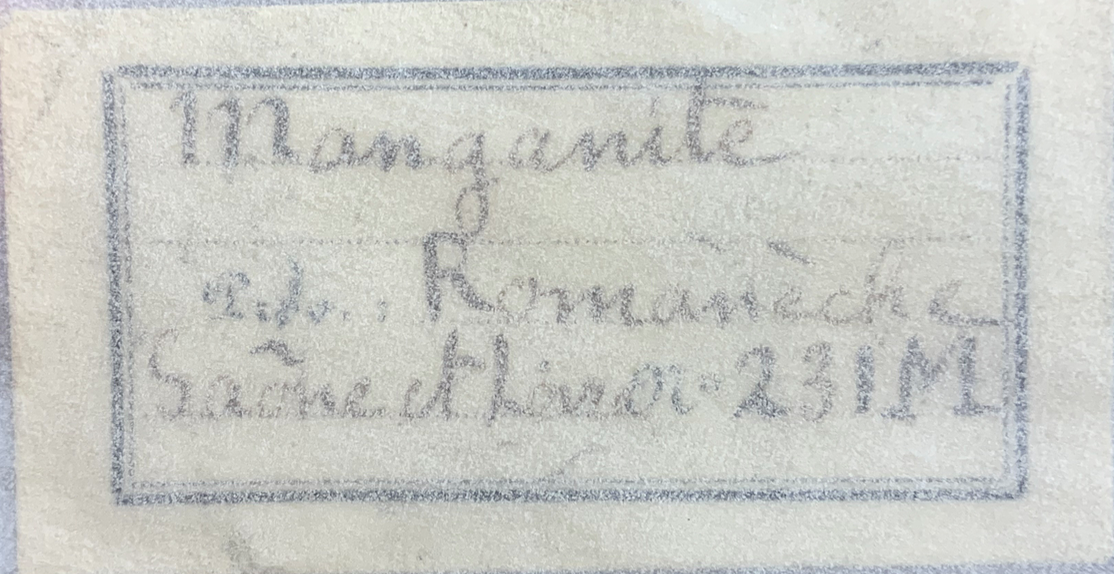 Manganite
Romanèche
Saône et Loire 231M